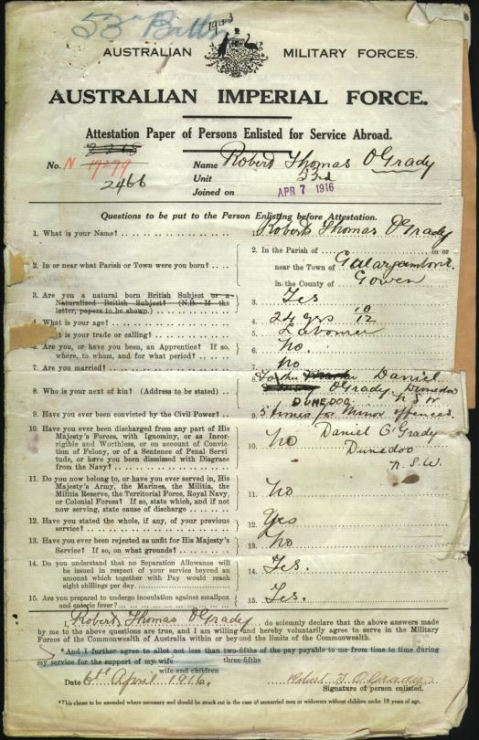 53rd Battn
AUSTRALIAN MILITARY FORCES.
AUSTRALIAN IMPERIAL FORCE.
Attestation Paper of Persons Enlisted for Service Abroad.
No. N
2466
Name Robert Thomas O'Grady
Unit 53rd
Joined on APR 7 1916
Questions to be put to the Person Enlisting before Attestation.
1. What is your Name? 1. Robert Thomas O'Grady
2. In or near what Parish or Town were you born? 2. In the Parish of in or
near the Town of Galargambone
in the County of Gowen
3. Are you a natural born British Subject or a
Naturalized British Subject? (N.B. If the
letter, papers to be shown.) 3. Yes
4. What is your age? 4. 24 yrs 10/12
5. What is your trade or calling? 5. Labourer
6. Are you, or have you been, an Apprentice? If so,
where, to whom, and for what period? 6. No.
7. Are you married? 7. No
8. Who is your next of kin? (Address to be stated) 8. Daniel
O'Grady Dunedoo
DUNEDOO N.S.W
9. Have you ever been convicted by the Civil Power? 9. 5 times for Minor offences
10. Have you ever been discharged from any part of His
Majesty's Forces, with Ignominy, or as Incor-
rigible and Worthless, or on account of Convic-
tion of Felony, or of a Sentence of Penal Servi-
tude, or have you been dismissed with Disgrace
from the Navy? 10. No
Daniel O'Grady
Dunedoo
N.S.W.
11. Do you now belong to, or have you ever served in, His
Majesty's Army, the Marines, the Militia, the
Militia Reserve, the Territorial Force, Royal Navy,
or Colonial Forces? If so, state which, and if not
now serving, state cause of discharge 11. No
12. Have you stated the whole, if any, of your previous
service? 12. Yes
13. Have you ever been rejected as unfit for His Majesty's
Service? If so, on what grounds? 13. No
14. Do you understand that no Separation Allowance will
be issued in respect of your service beyond an
amount which together with Pay would reach
eight shillings per day. 14. Yes.
15. Are you prepared to undergo inoculation against smallpox
and enteric fever? 15. Yes.
I, Robert Thomas O'Grady do solemnly declare that the above answers made
by me to the above questions are true, and I am willing and hereby voluntarily agree to serve in the Military
Forces of the Commonwealth of Australia within or beyond the limits of the Commonwealth.
*And I further agree to allot not less than two-fifths of the pay payable to me from time to time during
my service for the support of my wife three-fifths
wife and children
Date 6th April 1916.
Signature of person enlisted.
*This clause to be amended where necessary and should be struck out in the case of unmarried men or widowers without children under 18 years of age.